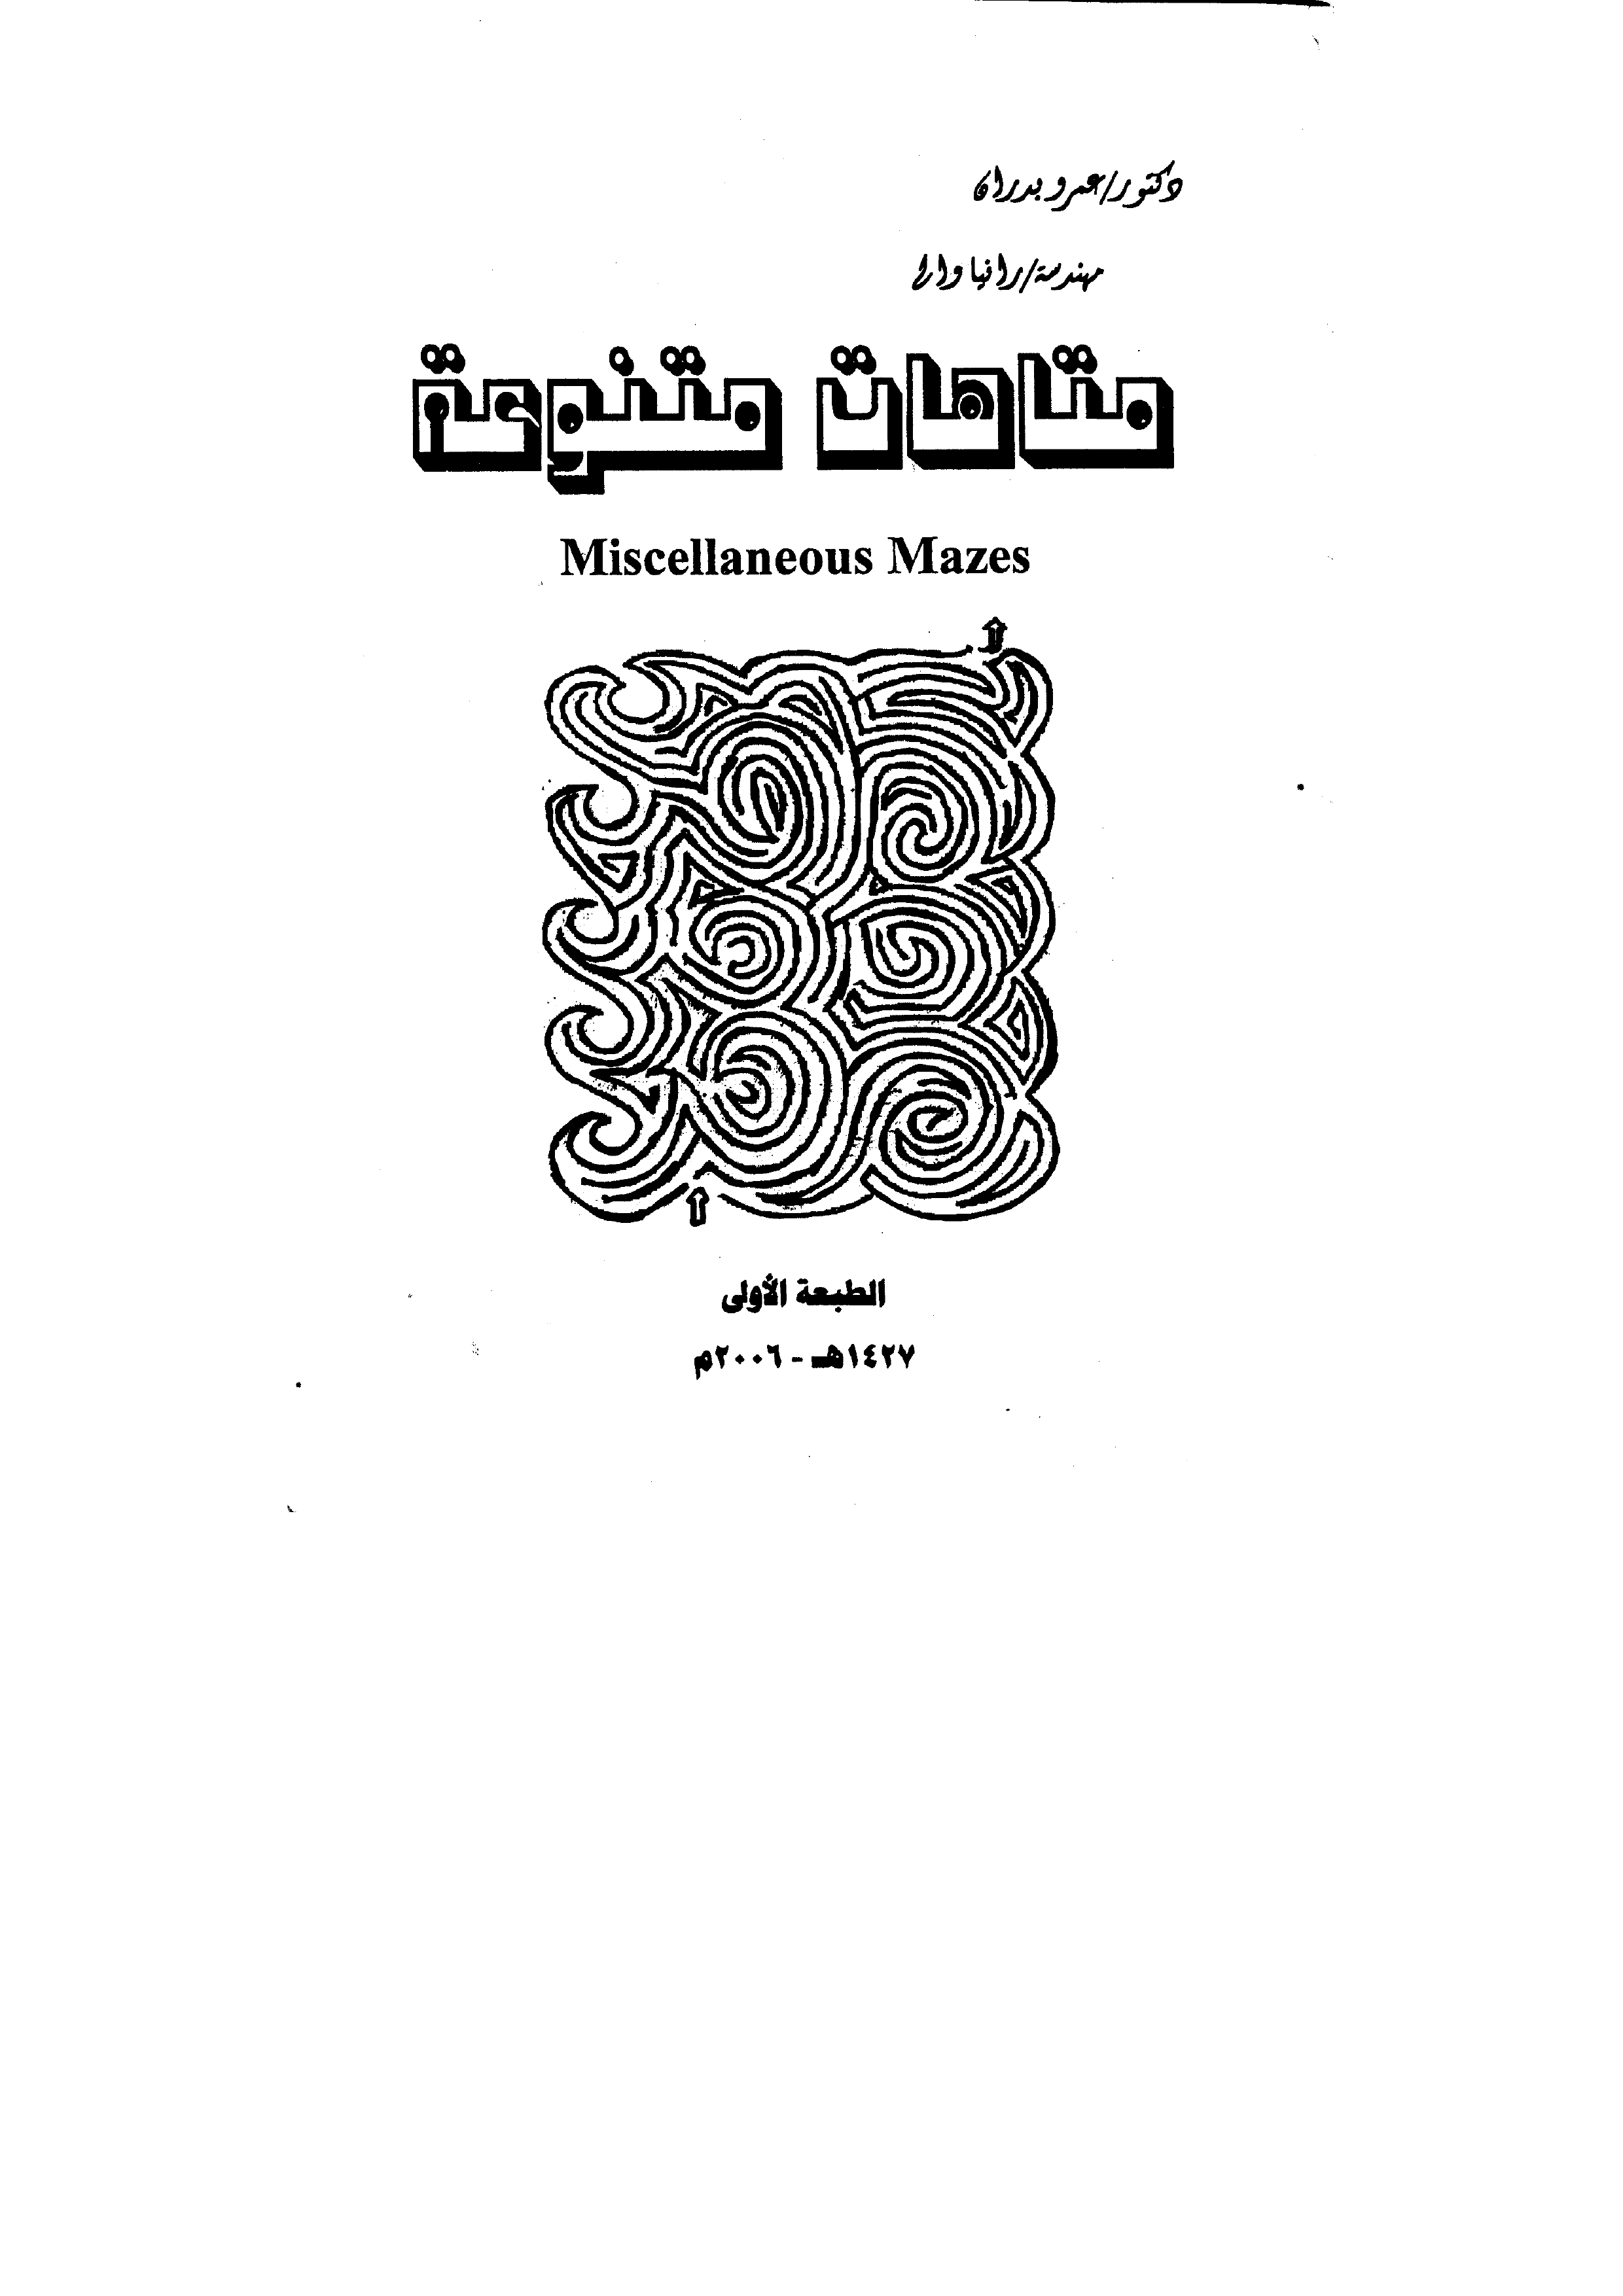 دكتور/عمرو بدران
مهندسة/رانيا وائل
متاهات متنوعة
Miscellaneous Mazes
الطبعة الأولى
١٤٢٧هـ - ٢٠٠٦م